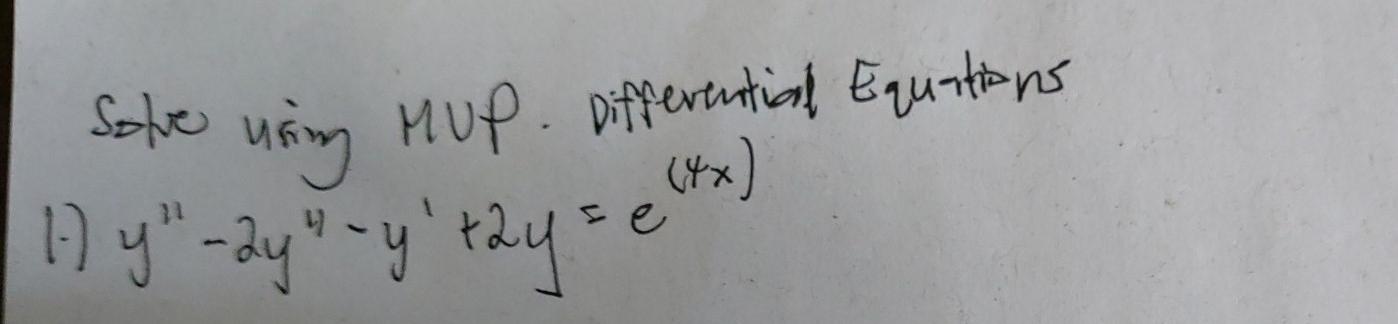 Solve using MVP. Differential Equations
1.) y" - 2y" - y' + 2y = e^(4x)